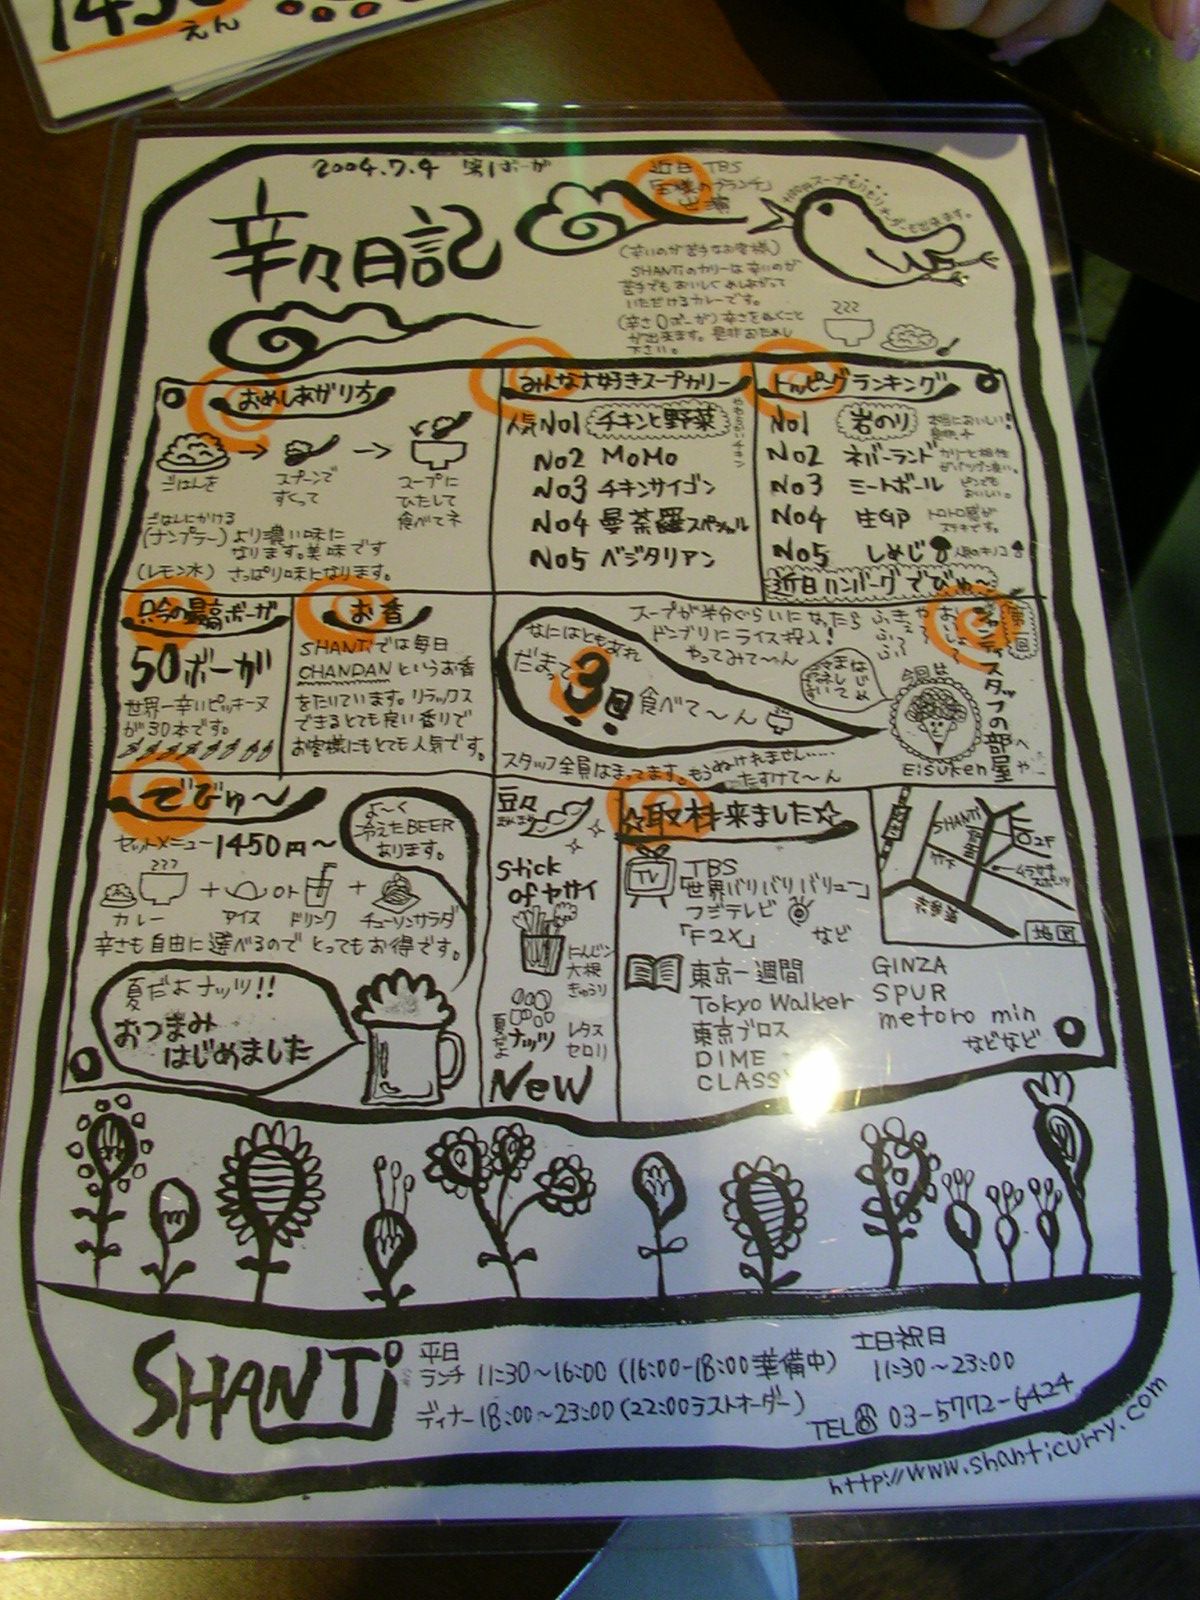 えん
2004.7.4 第1ボーガ
辛々日記
近日 TBS
「王様のブランチ」
(辛いのが苦手なお客様)
SHANTiのカリーは辛いのが
苦手でもおいしくめしあがって
いただけるカレーです。
(辛さ0ボーガ)辛さをぬくこと
が出来ます。是非おためし
下さい。
おめしあがり方
ごはんを
スプーンで
すくって
スープに
ひたして
食べてネ
ごはんにかける
(ナンプラー)より濃い味に
なります。美味です
(レモン水)さっぱり味になります。
みんな大好きスープカリー
人気No1 チキンと野菜
やわらかいチキン
No2 MoMo
No3 チキンサイゴン
No4 曼荼羅スペシャル
No5 ベジタリアン
トッピーグランキング
No1 岩のり 本当においしい!
No2 ネバーランド カリーと相性
がバツグン良い。
No3 ミートボール
おいしい。
No4 トロトロ感が
ステキです。
No5 しめじ 人気のキノコ
近日ハンバーグでびゅ〜
只今の最高ボーガ
50ボーガ
世界一辛いピッキーヌ
が30本です。
お香
SHANTiでは毎日
CHANDANというお香
をたいています。リラックス
できるとても良い香りで
お客様にもとても人気です。
スープが半分ぐらいになったら
ドンブリにライス投入!
やってみて〜ん
なにはともあれ
だまって3回食べて〜ん
スタッフ全員はまってます。もうぬけれません……
たすけて〜ん
シャンティスタッフの部屋
今回は
はじめ
まして
Eisukenへや
でびゅ〜
セットメニュー1450円〜
カレー + アイス or ドリンク + チューソンサラダ
辛さも自由に選べるのでとってもお得です。
よ〜く
冷えたBEER
あります。
夏だよナッツ!!
おつまみ
はじめました
豆々
Stick
of ヤサイ
にんじん
大根
きゅうり
レタス
セロリ
夏だよ
ナッツ
NeW
☆取材来ました☆
TV
TBS
「世界バリバリバリュー」
フジテレビ
「F2X」 など
東京一週間
Tokyo Walker
東京ブロス
DIME
CLASSY
GINZA
SPUR
metoro min
などなど
SHANTi
竹下
表参道
2F
ムラサキ
スポーツ
地図
SHANTi
平日
ランチ 11:30〜16:00 (16:00-18:00準備中)
ディナー 18:00〜23:00 (22:00ラストオーダー)
土日祝日
11:30〜23:00
TEL 03-5772-6424
http://www.shanticurry.com